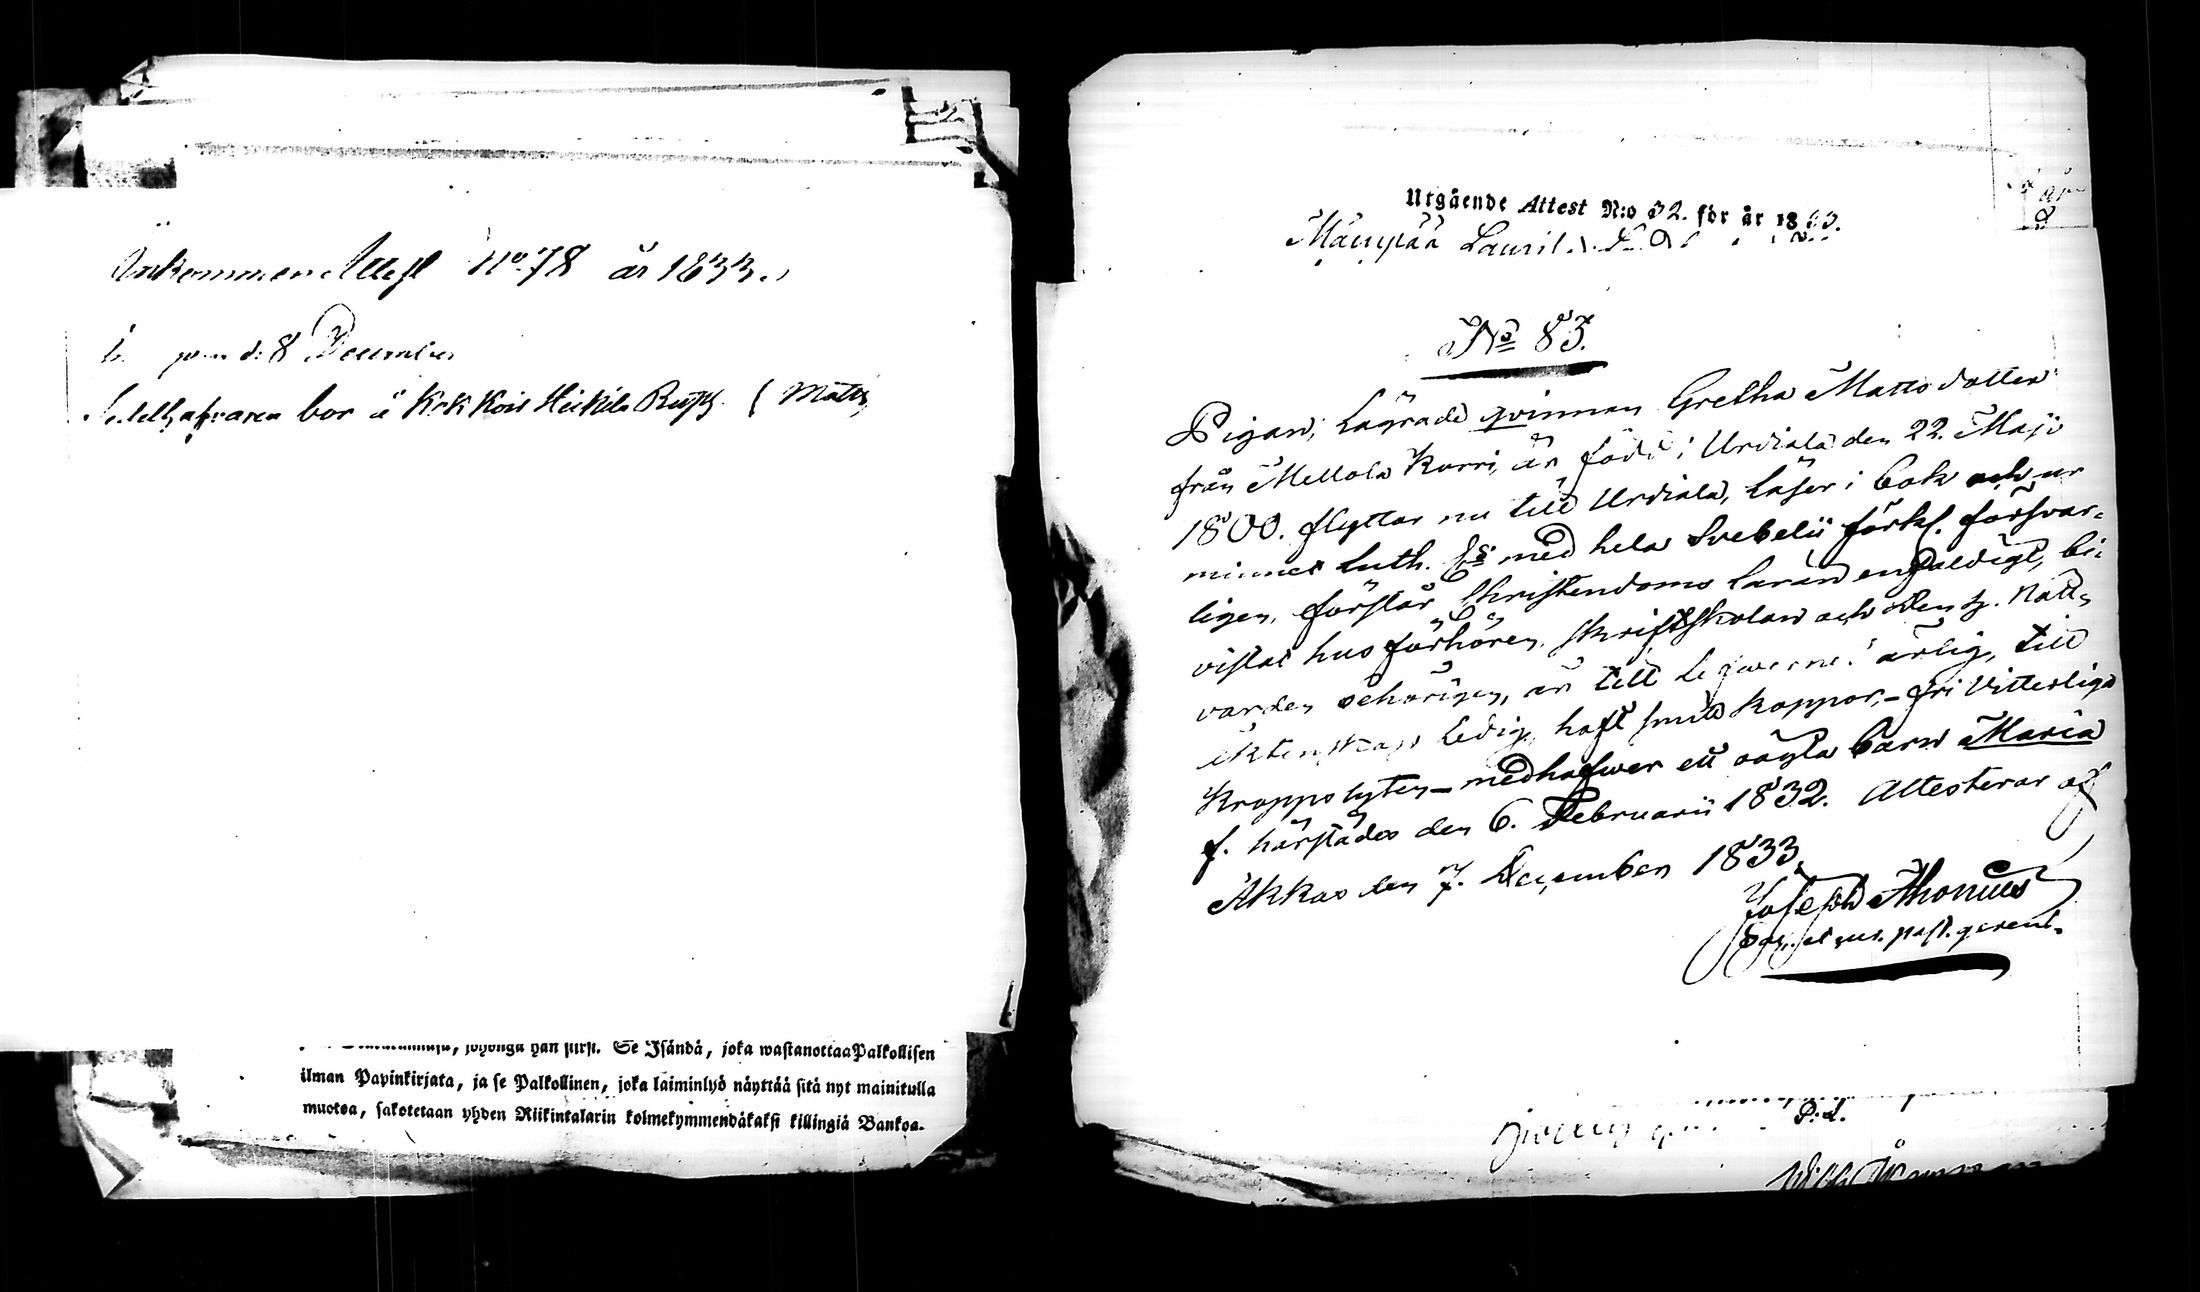 Ankommen Attest No. 78 år 1833.
d: 8 December
bor å Kirkkois Heikila Rusth. (Matts
Se Isändä, joka wastanottaa Palkollisen
ilman Papinkirjata, ja se Palkollinen, joka laiminlyö näyttää sitä nyt mainitulla
muotoa, sakotetaan yhden Riikintalarin kolmekymmendäkaksi killingiä Bankoa.
Utgående Attest N:o 32. för år 1833.
Lauril
No 83.
Pigan, Lägrade qvinnan Gretha Mattsdotter
från Mellola Kurri, är född i Urdiala den 22. Maji
1800. flyttar nu till Urdiala, läser i bok och ur
minnet Luth. Cs med hela Svebelii förkl. försvar-
ligen, förstår Christendoms läran enfaldigt, bi-
vistat husförhören, skriftskolan och den h. Natt-
varden behörigen, är till lefwerne ärlig, till
äktenskap ledig, haft små koppor, - fri vitterliga
Kroppslyten - medhafwer ett oägta barn Maria
f. härstädes den 6. Februarii 1832. Attesterar af
Akkas den 7. December 1833.
Joseph Ahonius
Sac. et vice past. gerent.
P:d.